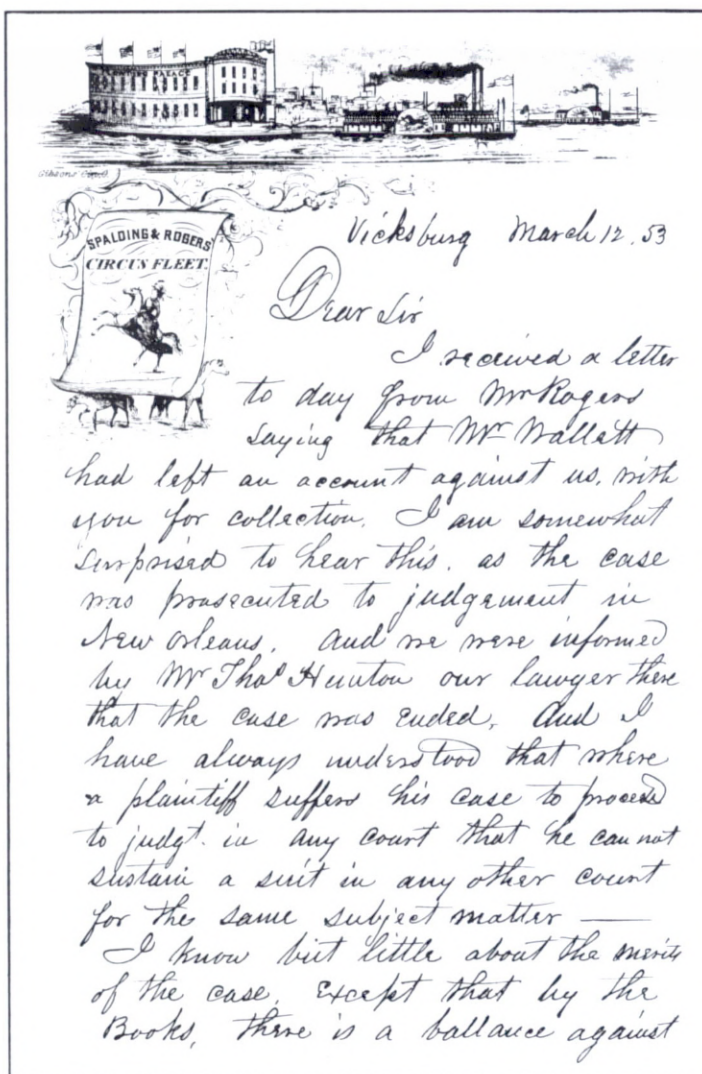 PALACE
SPALDING & ROGERS'
CIRCUS FLEET.
Vicksburg March 12. 53
Dear Sir
I received a letter
to day from Mr Rogers
saying that Mr Wallett
had left an account against us, with
you for collection. I am somewhat
surprised to hear this, as the case
was prosecuted to judgement in
New Orleans. And we were informed
by Mr Thos Hunton our lawyer there
that the case was ended, And I
have always understood that where
a plaintiff suffers his case to proceed
to judgt. in any court that he can not
sustain a suit in any other court
for the same subject matter —
I know but little about the merits
of the case. Except that by the
Books, there is a ballance against